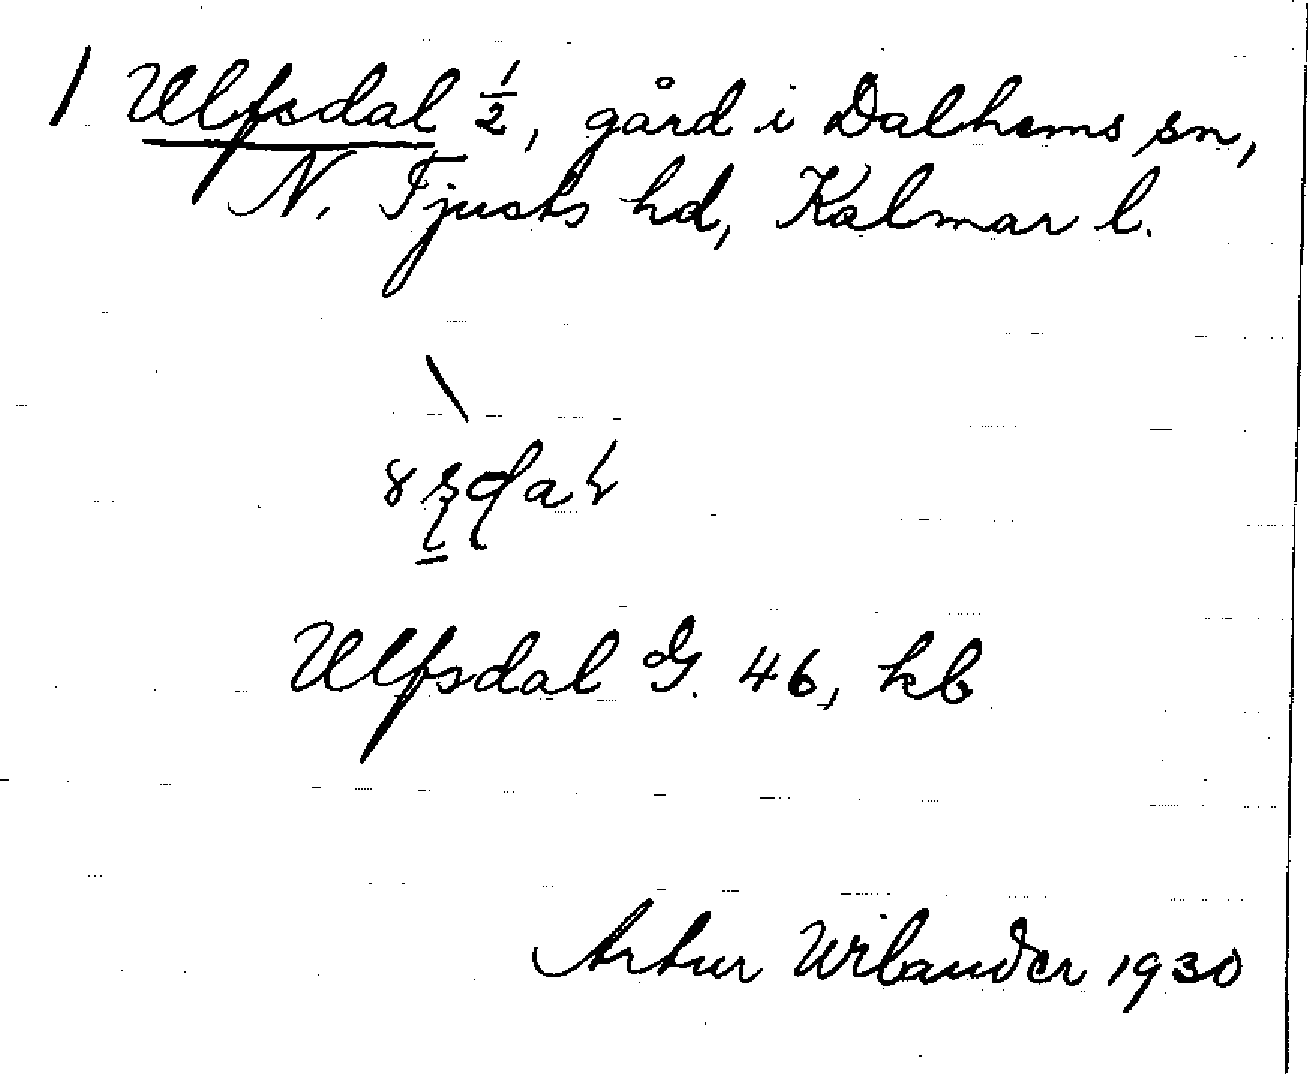 / Ulfsdal 1/2, gård i Dalhems sn,
N. Tjusts hd, Kalmar l.
Ulfsdal G. 46, kb
Artur Wilander 1930